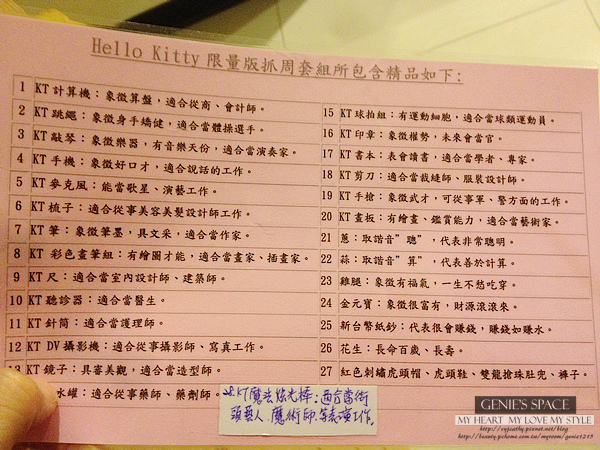 Hello Kitty 限量版抓周套組所包含精品如下:
1 KT 計算機：象徵算盤，適合從商、會計師。
2 KT 跳繩：象徵身手矯健，適合當體操選手。
3 KT 敲琴：象徵樂器，有音樂天份，適合當演奏家。
4 KT 手機：象徵好口才，適合說話的工作。
5 KT 麥克風：能當歌星、演藝工作。
6 KT 梳子：適合從事美容美髮設計師工作。
7 KT 筆：象徵筆墨，具文采，適合當作家。
8 KT 彩色畫筆組：有繪圖才能，適合當畫家、插畫家。
9 KT 尺：適合當室內設計師、建築師。
10 KT 聽診器：適合當醫生。
11 KT 針筒：適合當護理師。
12 KT DV 攝影機：適合從事攝影師、寫真工作。
13 KT 鏡子：具審美觀，適合當造型師。
水罐：適合從事藥師、藥劑師。
15 KT 球拍組：有運動細胞，適合當球類運動員。
16 KT 印章：象徵權勢，未來會當官。
17 KT 書本：表會讀書，適合當學者、專家。
18 KT 剪刀：適合當裁縫師、服裝設計師。
19 KT 手槍：象徵武才，可從事軍、警方面的工作。
20 KT 畫板：有繪畫、鑑賞能力，適合當藝術家。
21 蔥：取諧音"聰"，代表非常聰明。
22 蒜：取諧音"算"，代表善於計算。
23 雞腿：象徵有福氣，一生不愁吃穿。
24 金元寶：象徵很富有，財源滾滾來。
25 新台幣紙鈔：代表很會賺錢，賺錢如賺水。
26 花生：長命百歲、長壽。
27 紅色刺繡虎頭帽、虎頭鞋、雙龍搶珠肚兜、褲子。
28.KT魔法炫光棒：適合當街
頭藝人.魔術師.等表演工作.
GENIE'S SPACE
MY HEART MY LOVE MY STYLE
http://cyjcathy.pixnet.net/blog
http://beauty.pchome.com.tw/myroom/genie1218